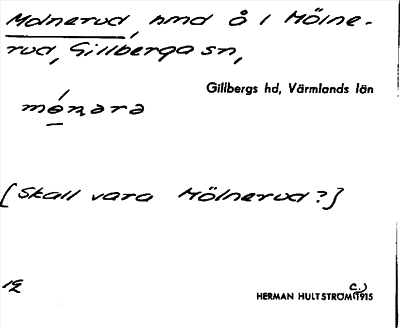 Molnerud, hmd å i Mölne-
rud, Gillberga sn,
Gillbergs hd, Värmlands län
[Skall vara Mölnerud?]
HERMAN HULTSTRÖM (C.) 1915